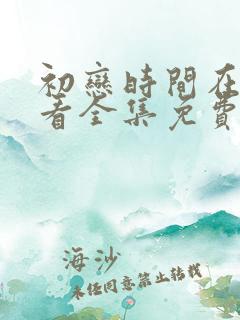 初戀時間在
看全集免費
海沙
未經同意禁止轉載